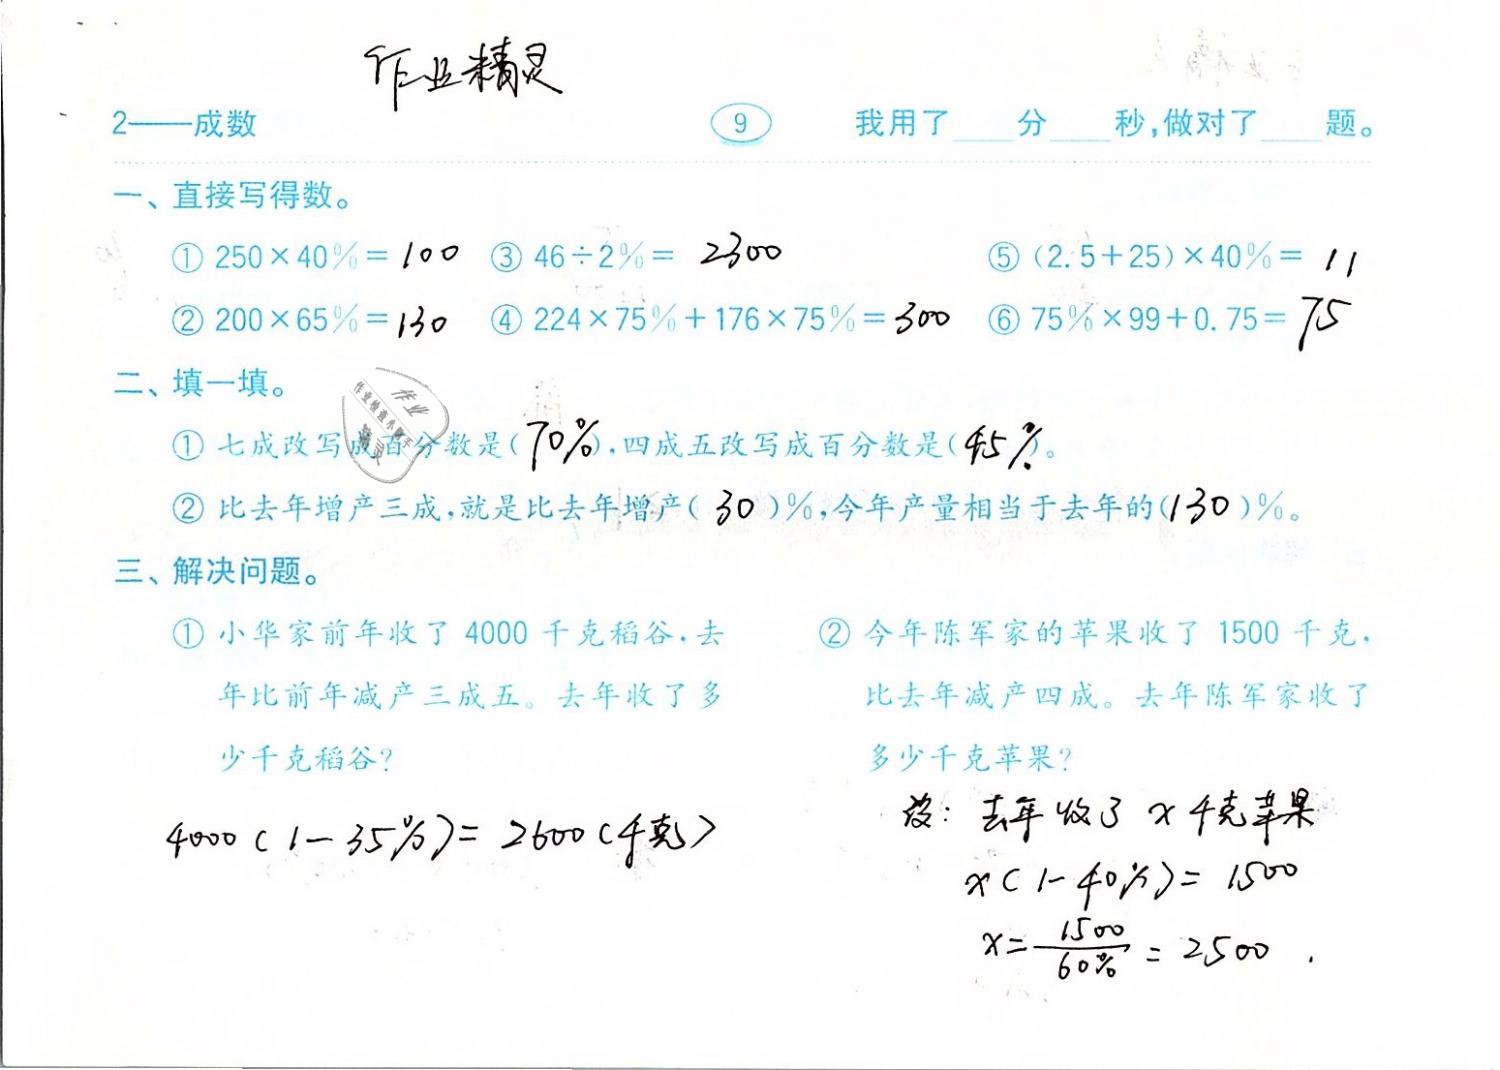 作业精灵
2——成数 9 我用了____分____秒,做对了____题。
一、直接写得数。
① 250×40%= 100 ③ 46÷2%= 2300 ⑤ (2.5+25)×40%= 11
② 200×65%= 130 ④ 224×75%+176×75%= 300 ⑥ 75%×99+0.75= 75
二、填一填。
作业
作业检查小助手
精灵
① 七成改写成百分数是(70%),四成五改写成百分数是(45%)。
② 比去年增产三成,就是比去年增产( 30 )%,今年产量相当于去年的(130)%。
三、解决问题。
① 小华家前年收了 4000 千克稻谷,去
年比前年减产三成五。去年收了多
少千克稻谷?
4000(1-35%)=2600(千克)
② 今年陈军家的苹果收了 1500 千克,
比去年减产四成。去年陈军家收了
多少千克苹果?
设:去年收了x千克苹果
x(1-40%)=1500
x=1500/60%=2500.